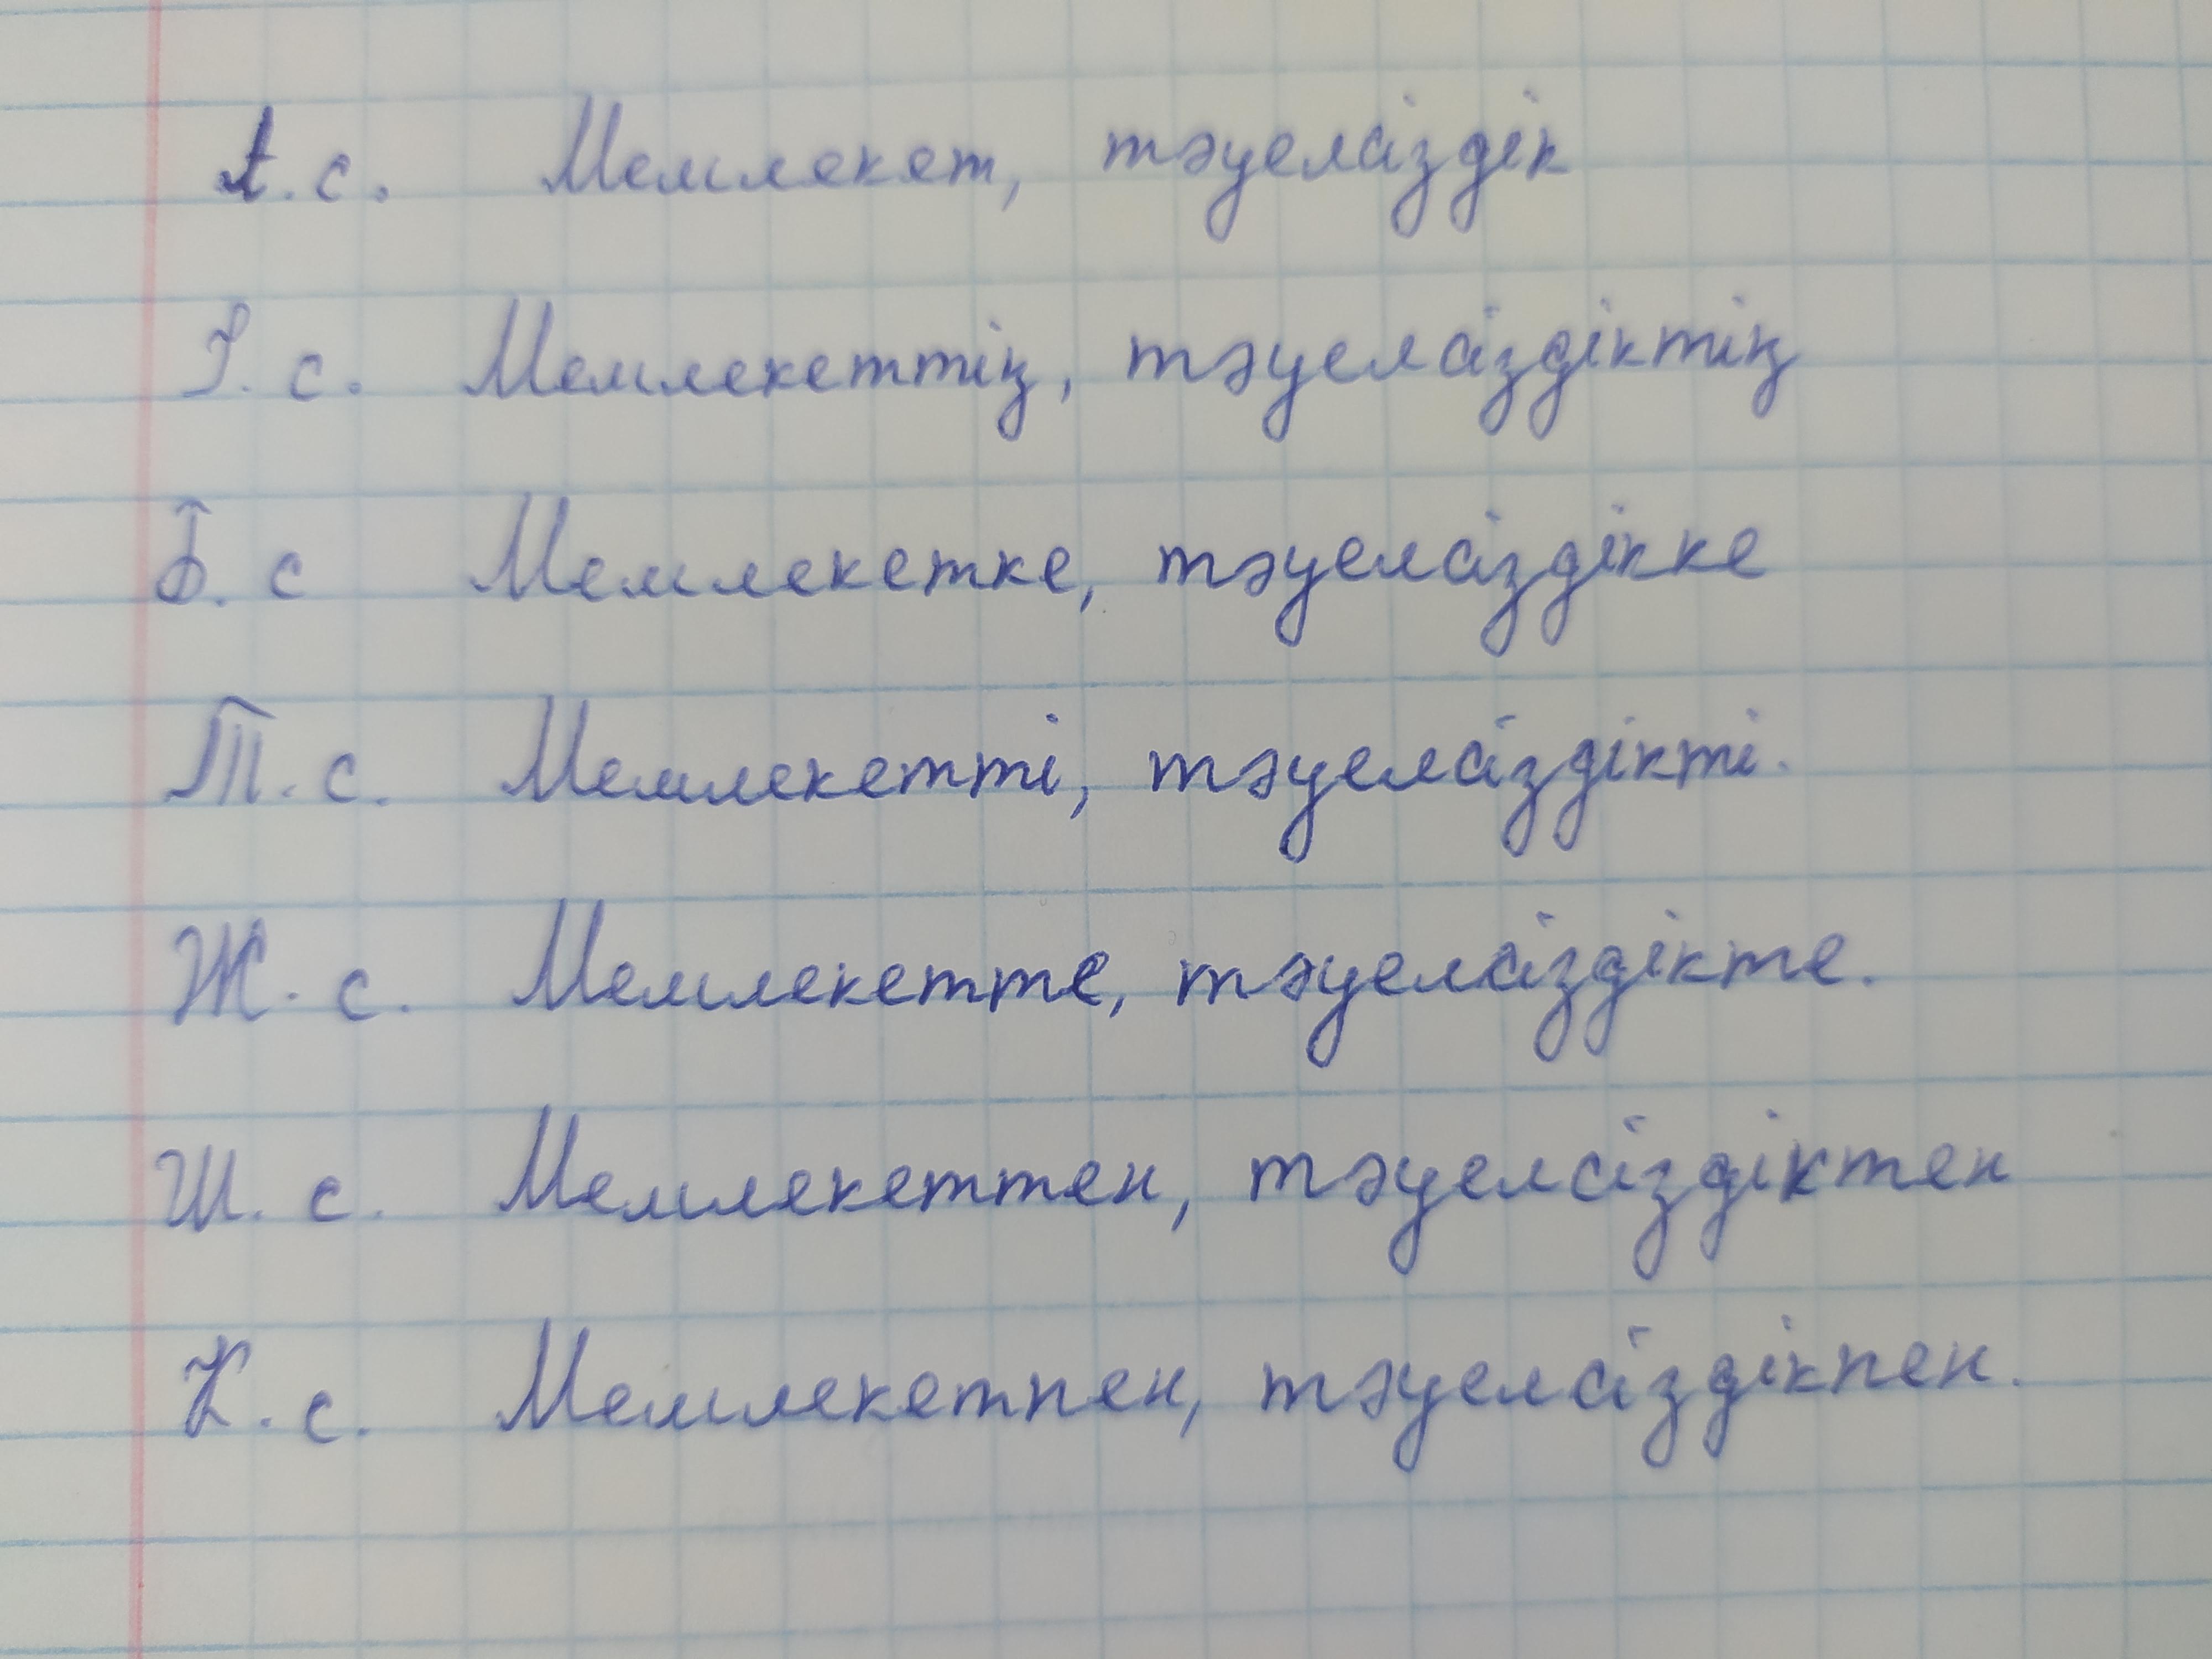 А.с. Мемлекет, тәуелсіздік
І.с. Мемлекеттің, тәуелсіздіктің
Б.с Мемлекетке, тәуелсіздікке
Т.с. Мемлекетті, тәуелсіздікті.
Ж.с. Мемлекетте, тәуелсіздікте.
Ш.с. Мемлекеттен, тәуелсіздіктен
К.с. Мемлекетпен, тәуелсіздікпен.